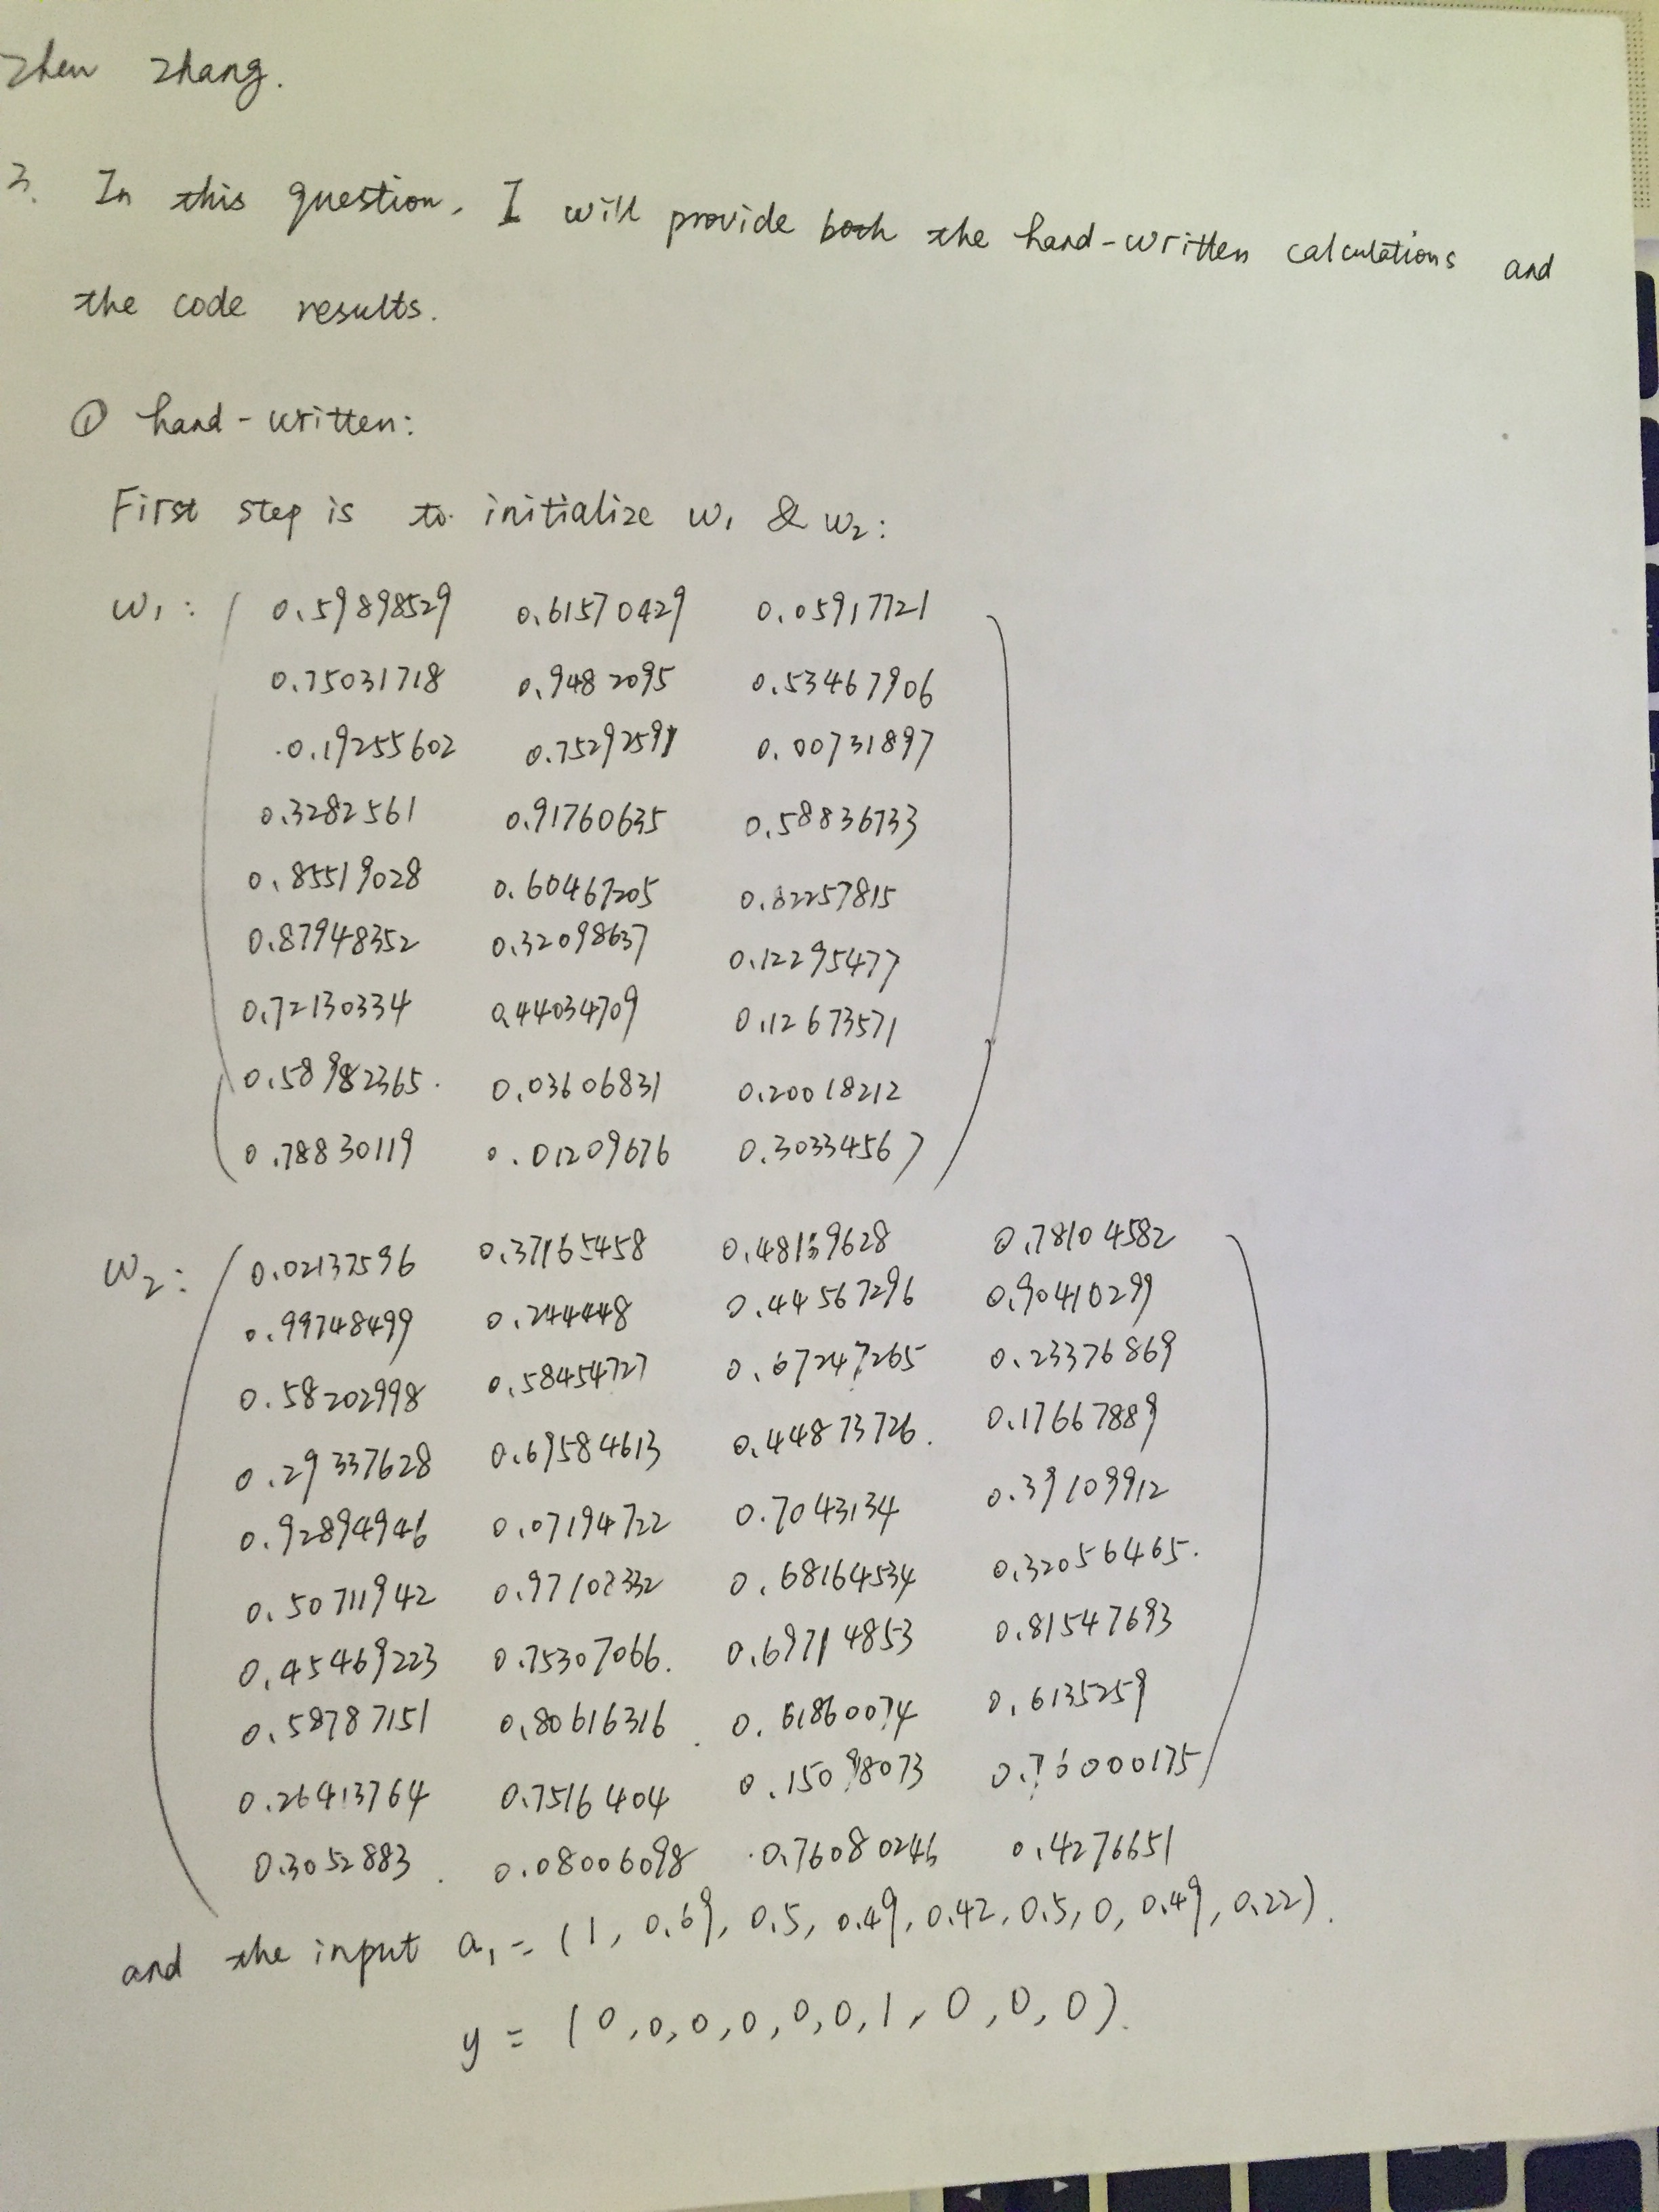 Zhen Zhang.
3. In this question, I will provide both the hand-written calculations and
the code results.
① hand-written:
First step is to initialize w₁ & w₂:
w₁: 0.59898529 0.61570429 0.05917721
0.75031718 0.9482095 0.53467906
0.19255602 0.75292591 0.00731897
0.3282561 0.91760635 0.58836733
0.85519028 0.60467205 0.82257815
0.87948352 0.32098637 0.12295477
0.72130334 0.44034709 0.12673571
0.58982365 0.03606831 0.20018212
0.78830119 0.01209676 0.30334567
w₂: 0.02137596 0.37165458 0.48139628 0.78104582
0.99748499 0.244448 0.44567296 0.90410299
0.58202998 0.58454727 0.67247265 0.23376869
0.29337628 0.69584613 0.44873726 0.17667889
0.92894946 0.07194722 0.7043134 0.39109912
0.50711942 0.97102332 0.68164534 0.32056465
0.45469223 0.75307066 0.69714853 0.81547693
0.58787151 0.80616316 0.61860074 0.6135259
0.26413764 0.7516404 0.15098073 0.76000175
0.3052883 0.08006098 0.76080246 0.4276651
and the input a₁ = (1, 0.69, 0.5, 0.49, 0.42, 0.5, 0, 0.49, 0.22).
y = (0,0,0,0,0,0,1,0,0,0).